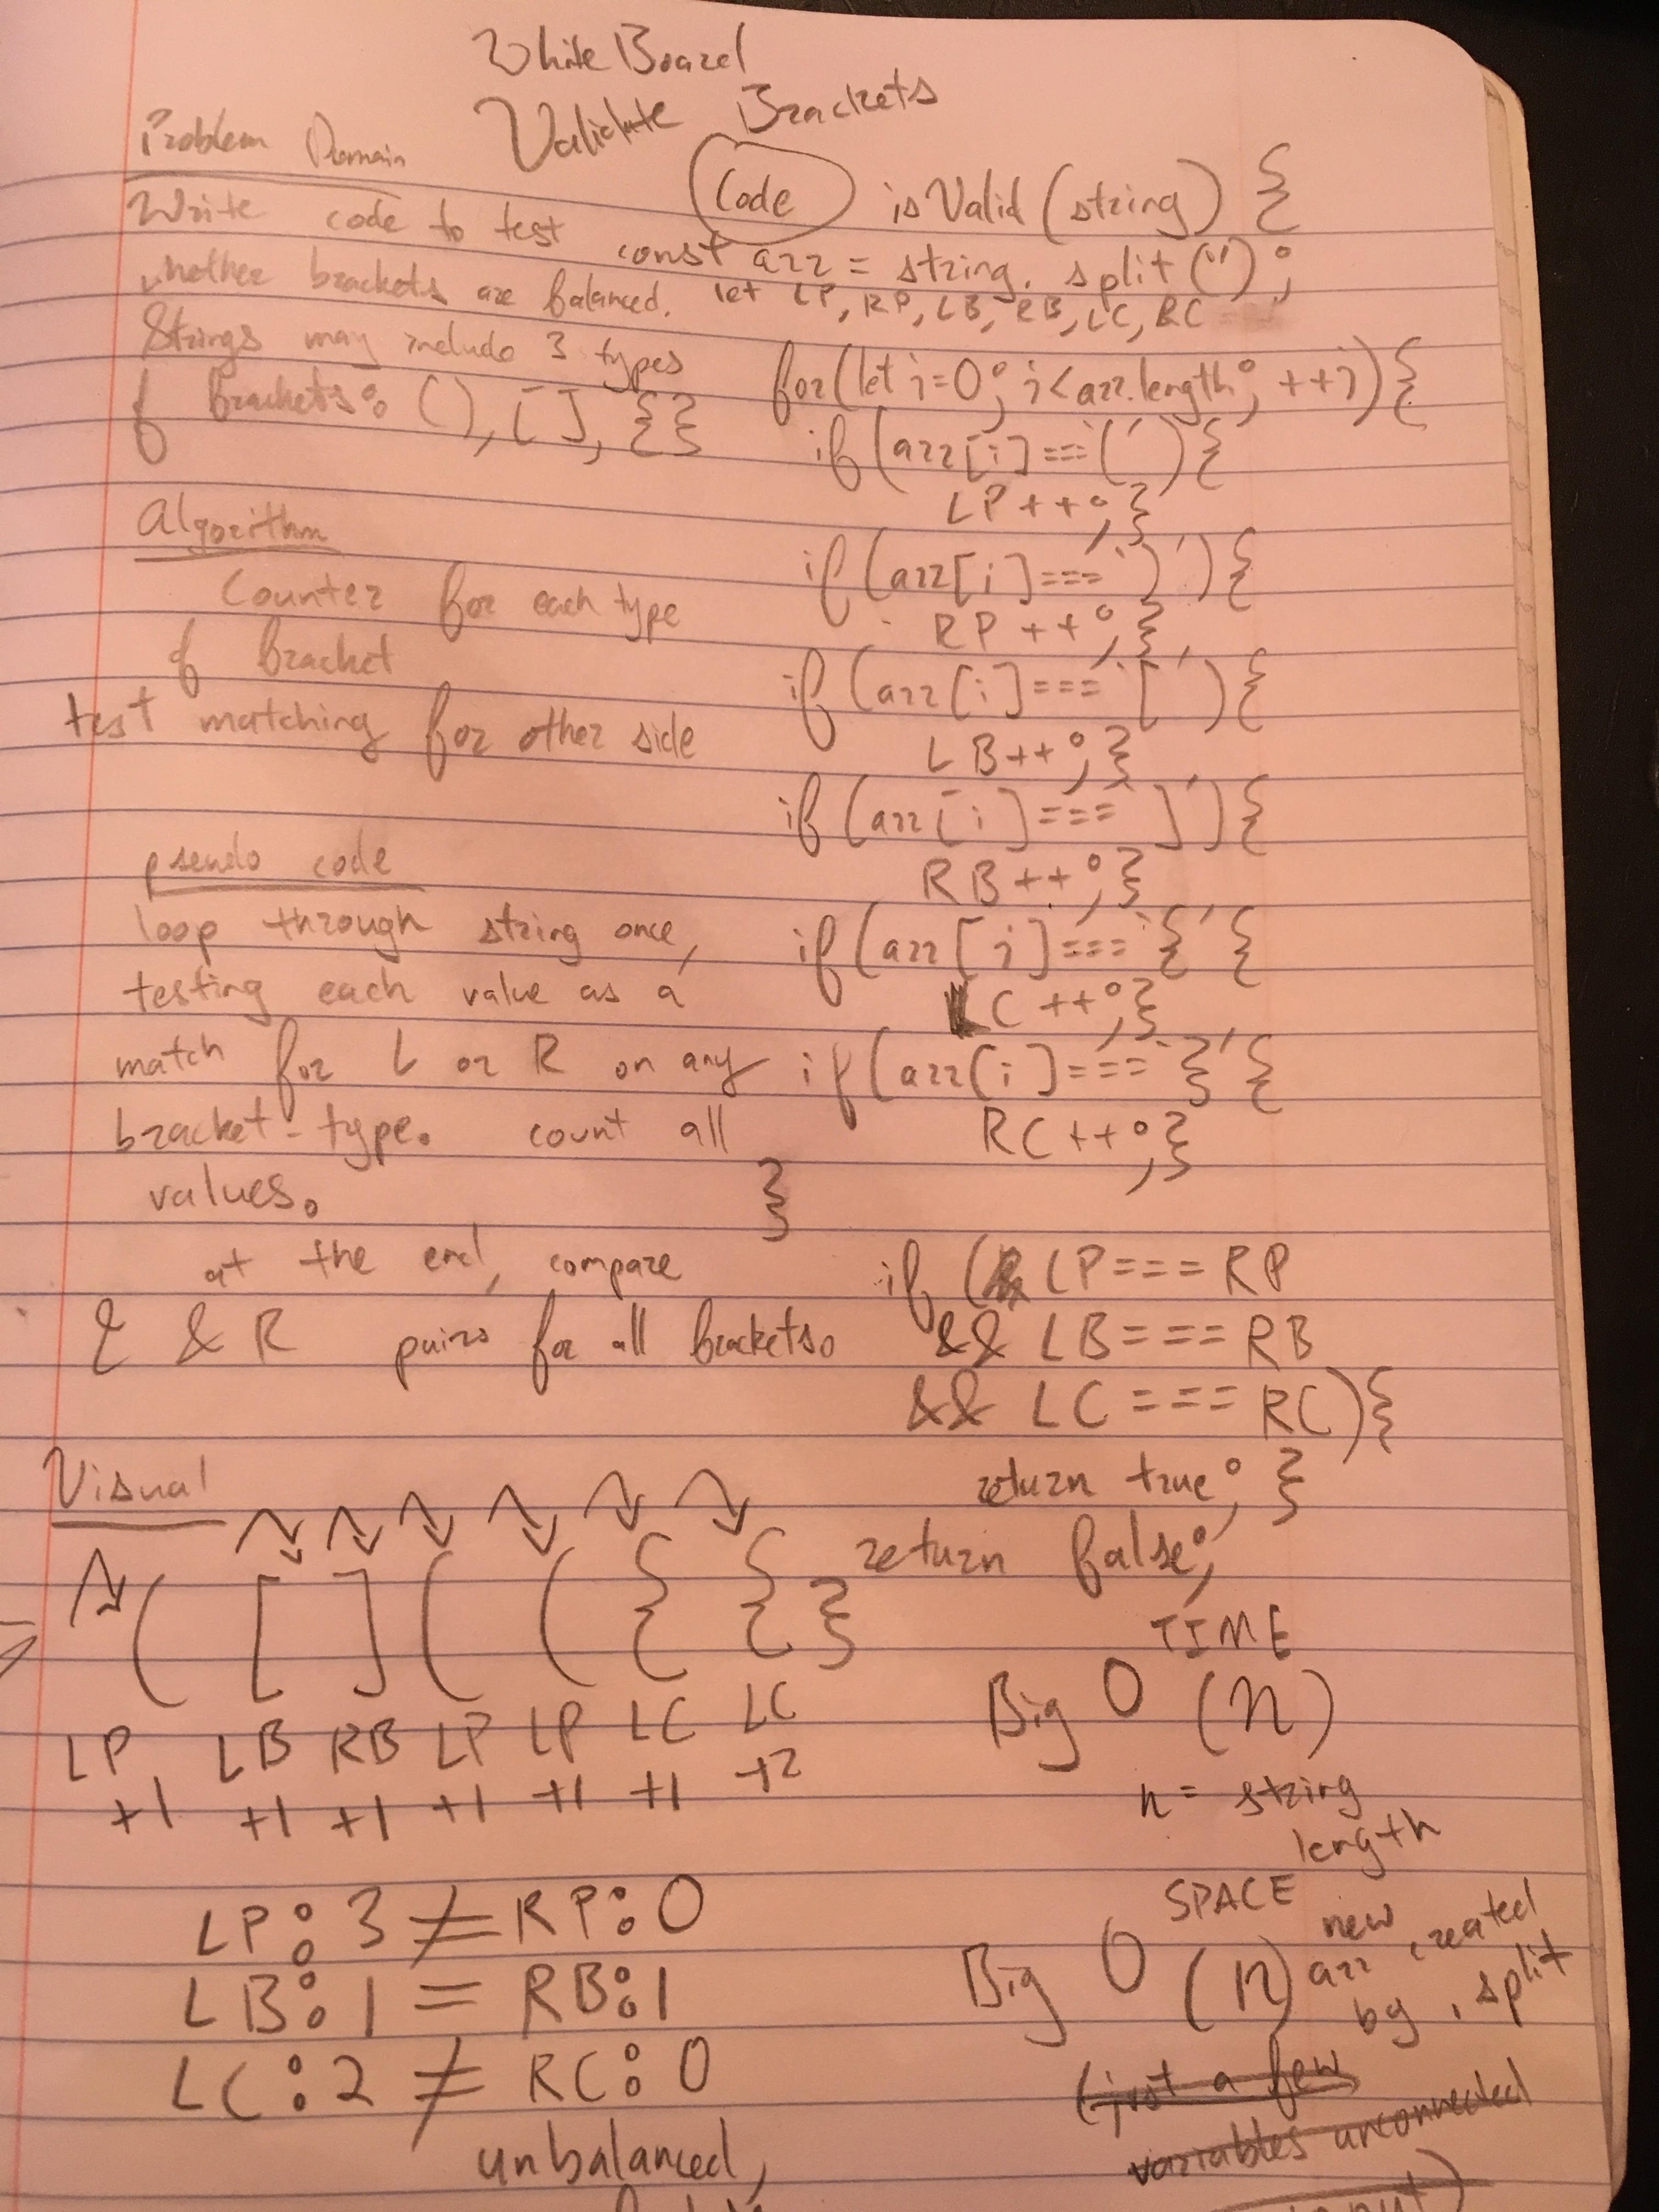 White Board
Validate Brackets
Problem Domain
Write code to test
whether brackets are balanced.
Strings may include 3 types
of brackets: (), [], {}
Algorithm
Counter for each type
of bracket
test matching for other side
pseudo code
loop through string once,
testing each value as a
match for L or R on any
bracket-type. count all
values.
at the end, compare
L & R pairs for all brackets.
Code
isValid (string) {
const arr = string.split('');
let LP, RP, LB, RB, LC, RC
for(let i=0; i<arr.length; ++i){
if (arr[i]==='('){
LP++;}
if (arr[i]===')'){
RP++;}
if (arr[i]==='['){
LB++;}
if (arr[i]===']'){
RB++;}
if (arr[i]==='{'{
LC++;}
if (arr[i]==='}'{
RC++;}
}
if (LP===RP
&& LB===RB
&& LC===RC){
return true;}
return false;
Visual
( [ ] ( ( { { }
LP LB RB LP LP LC LC
+1 +1 +1 +1 +1 +1 +2
LP: 3 ≠ RP: 0
LB: 1 = RB: 1
LC: 2 ≠ RC: 0
unbalanced,
TIME
Big O (n)
n = string
length
SPACE
Big O (n)
new
arr created
by .split
(just a few
variables unconnected